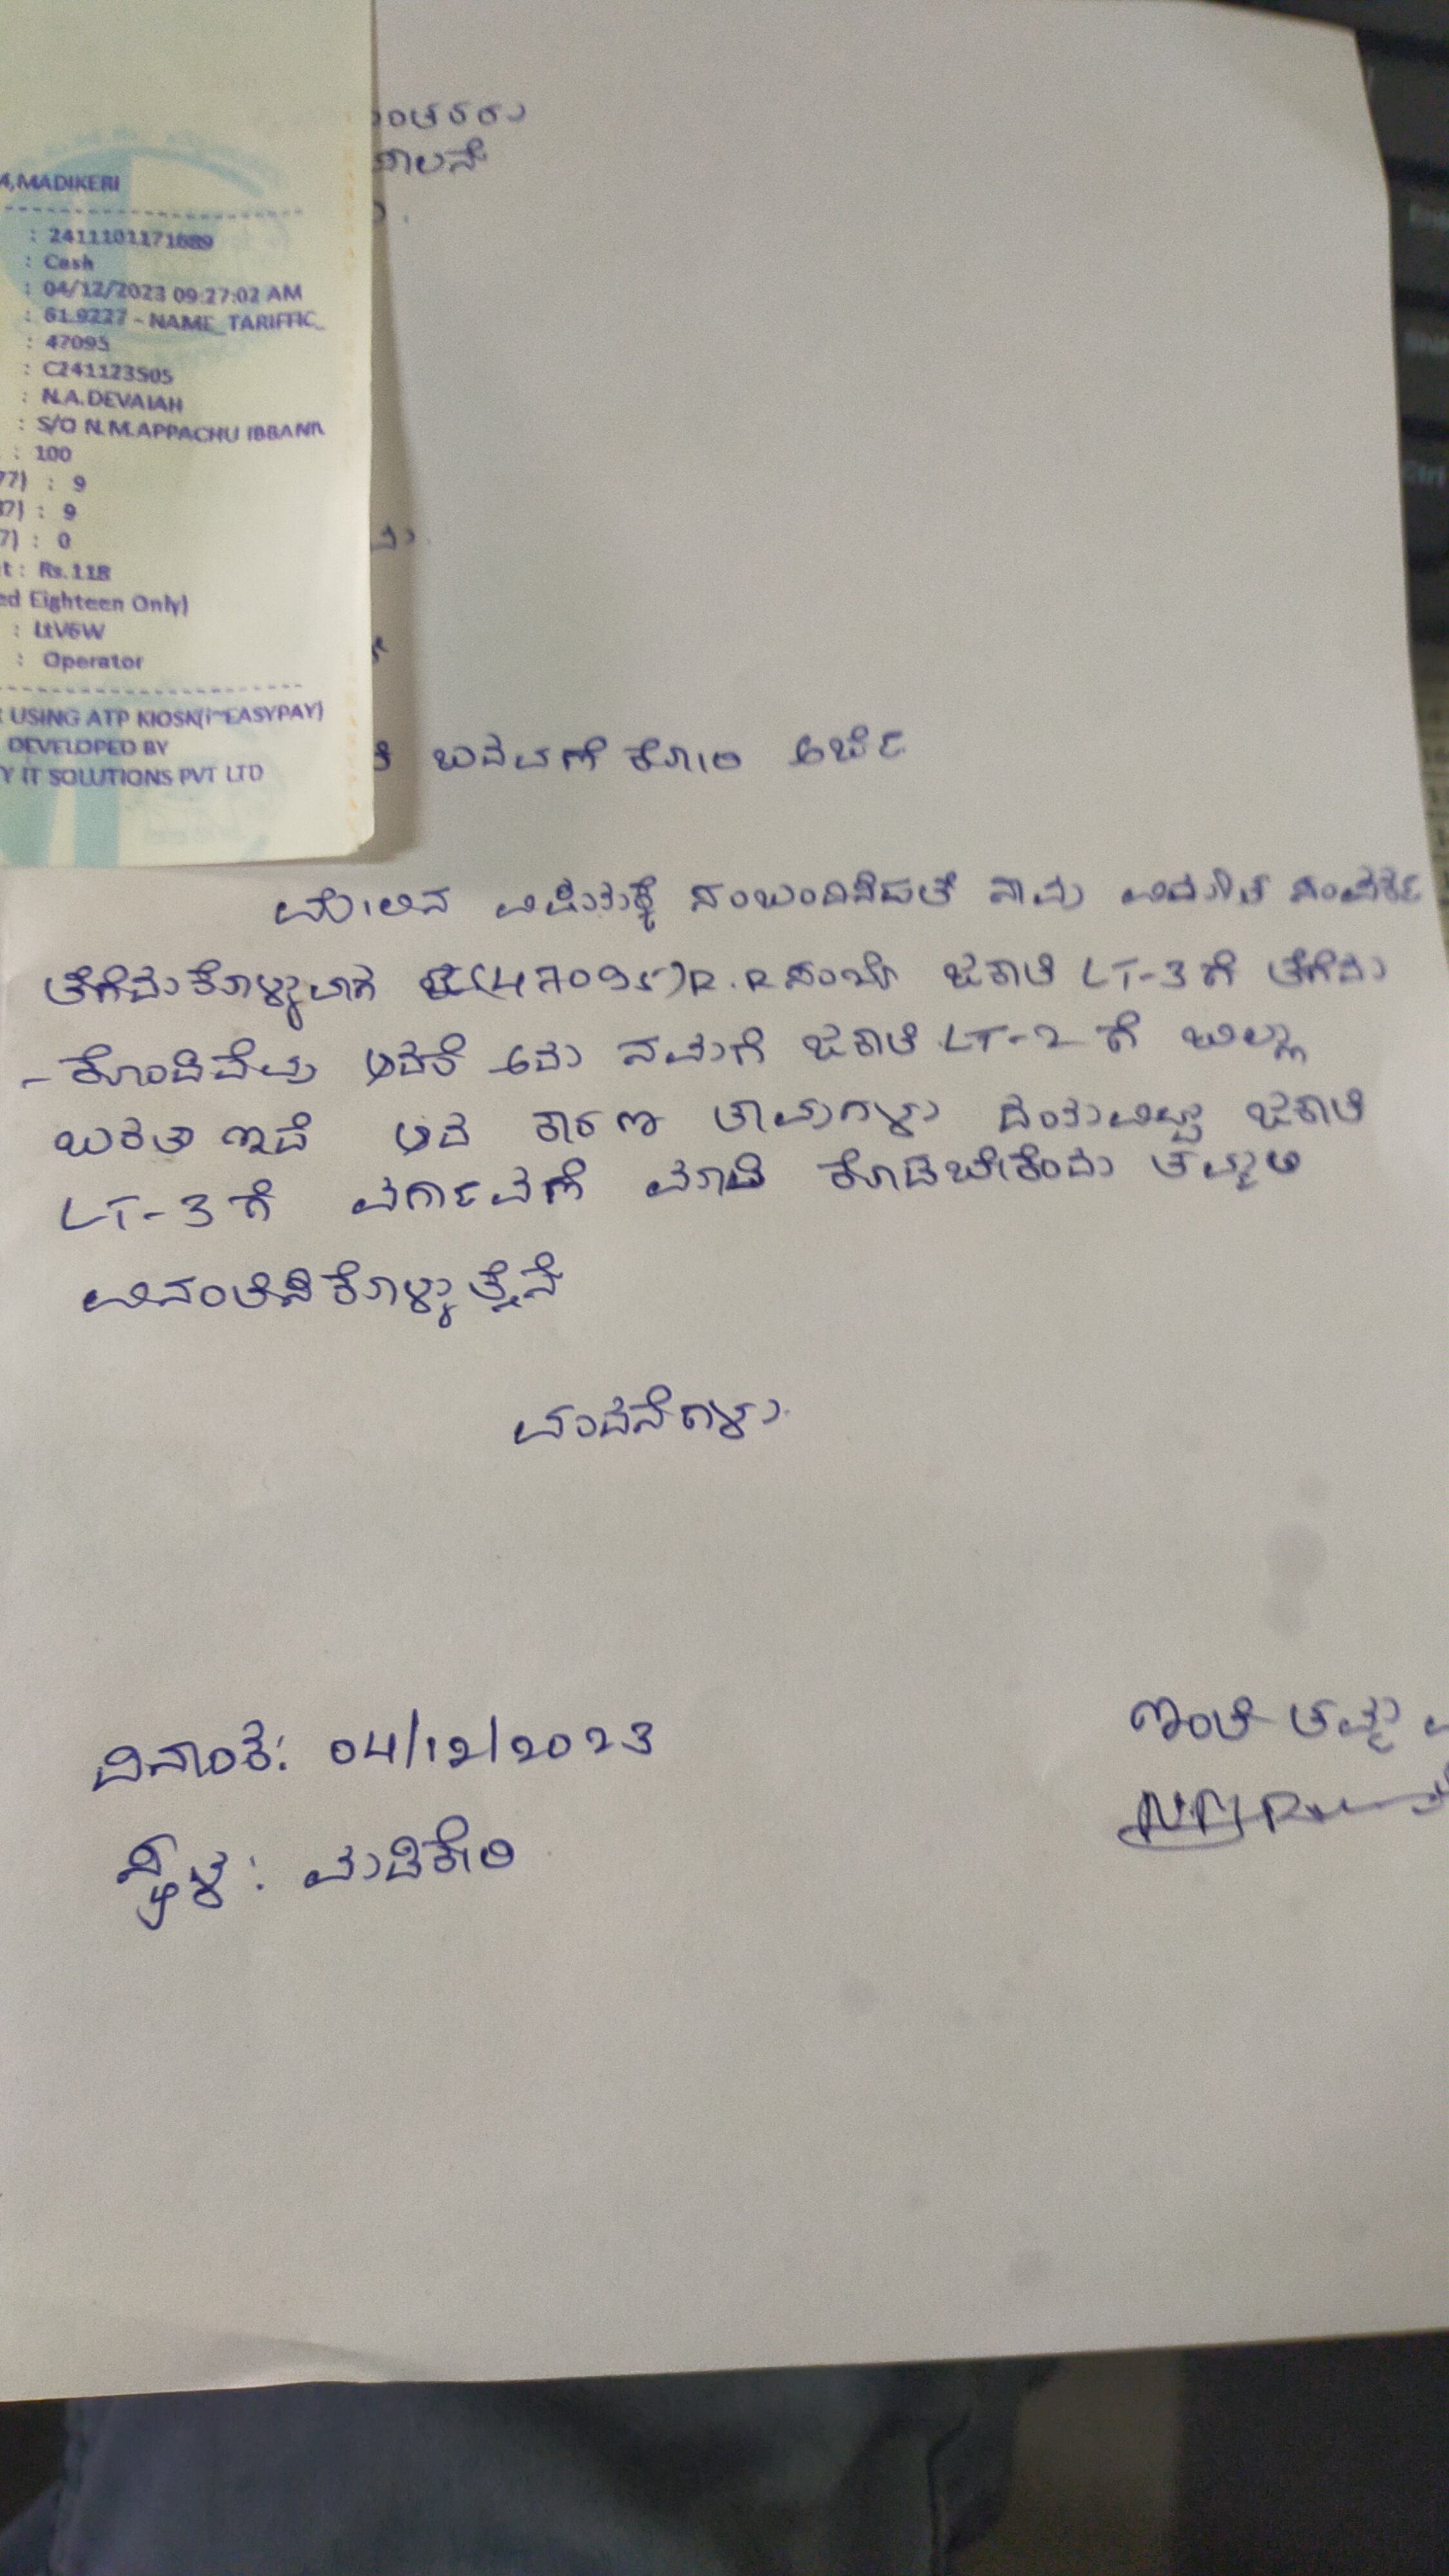 A,MADIKERI
: 2411101171689
: Cash
: 04/12/2023 09:27:02 AM
: 61.9227 - NAME_TARIFFIC_
: 47095
: C241123505
: N.A.DEVAIAH
: S/O N.M.APPACHU IBBANR
: 100
77) : 9
37) : 9
7) : 0
t : Rs.118
ed Eighteen Only)
: LtV6W
: Operator
USING ATP KIOSK(i~EASYPAY)
DEVELOPED BY
Y IT SOLUTIONS PVT LTD
ಬದಲಾವಣೆ ಕೋರಿ ಅರ್ಜಿ
ಮೇಲಿನ ವಿಷಯಕ್ಕೆ ಸಂಬಂದಿಸಿದಂತೆ ನಾವು ವಿದ್ಯುತ್ ಸಂಪರ್ಕ
ತೆಗೆದುಕೊಳ್ಳುವಾಗ (47095) R.R ನಂಬ್ರ ಜಕಾತಿ LT-3 ಗೆ ತೆಗೆದು
-ಕೊಂಡಿದೆವು ಆದರೆ ಅದು ನಮಗೆ ಜಕಾತಿ LT-2 ಗೆ ಬಿಲ್ಲು
ಬರುತ್ತಾ ಇದೆ ಆದ ಕಾರಣ ತಾವುಗಳು ದಯವಿಟ್ಟು ಜಕಾತಿ
LT-3 ಗೆ ವರ್ಗಾವಣೆ ಮಾಡಿ ಕೊಡಬೇಕೆಂದು ತಮ್ಮಲಿ
ವಿನಂತಿಸಿಕೊಳ್ಳುತ್ತೇನೆ
ವಂದನೆಗಳು.
ದಿನಾಂಕ: 04/12/2023
ಇಂತಿ ತಮ್ಮ
ಸ್ಥಳ: ಮಡಿಕೇರಿ